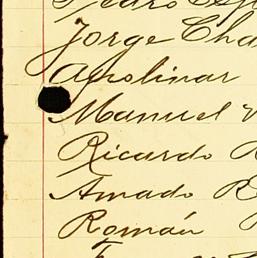 Pedro
Jorge Cha
Apolinar
Manuel
Ricardo R
Amado R
Román